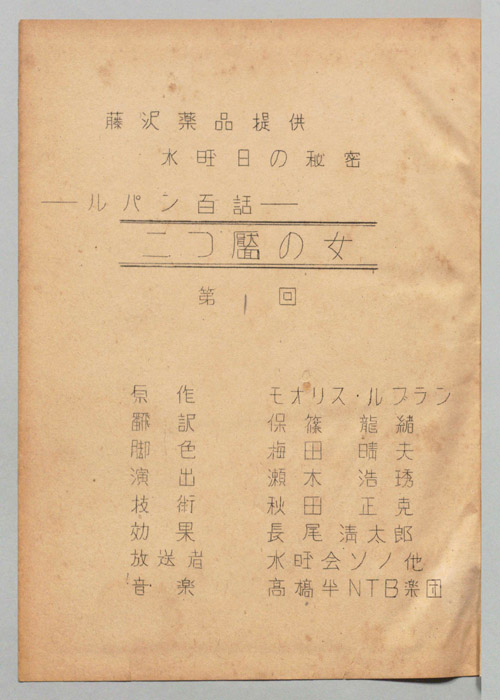 藤沢薬品提供
水曜日の秘密
―ルパン百話―
二つ靨の女
第1回
原作 モオリス・ルブラン
翻訳 保篠龍緒
脚色 梅田晴夫
演出 瀬木浩琇
技術 秋田正克
効果 長尾清太郎
放送者 水曜会ソノ他
音楽 高橋半NTB楽団